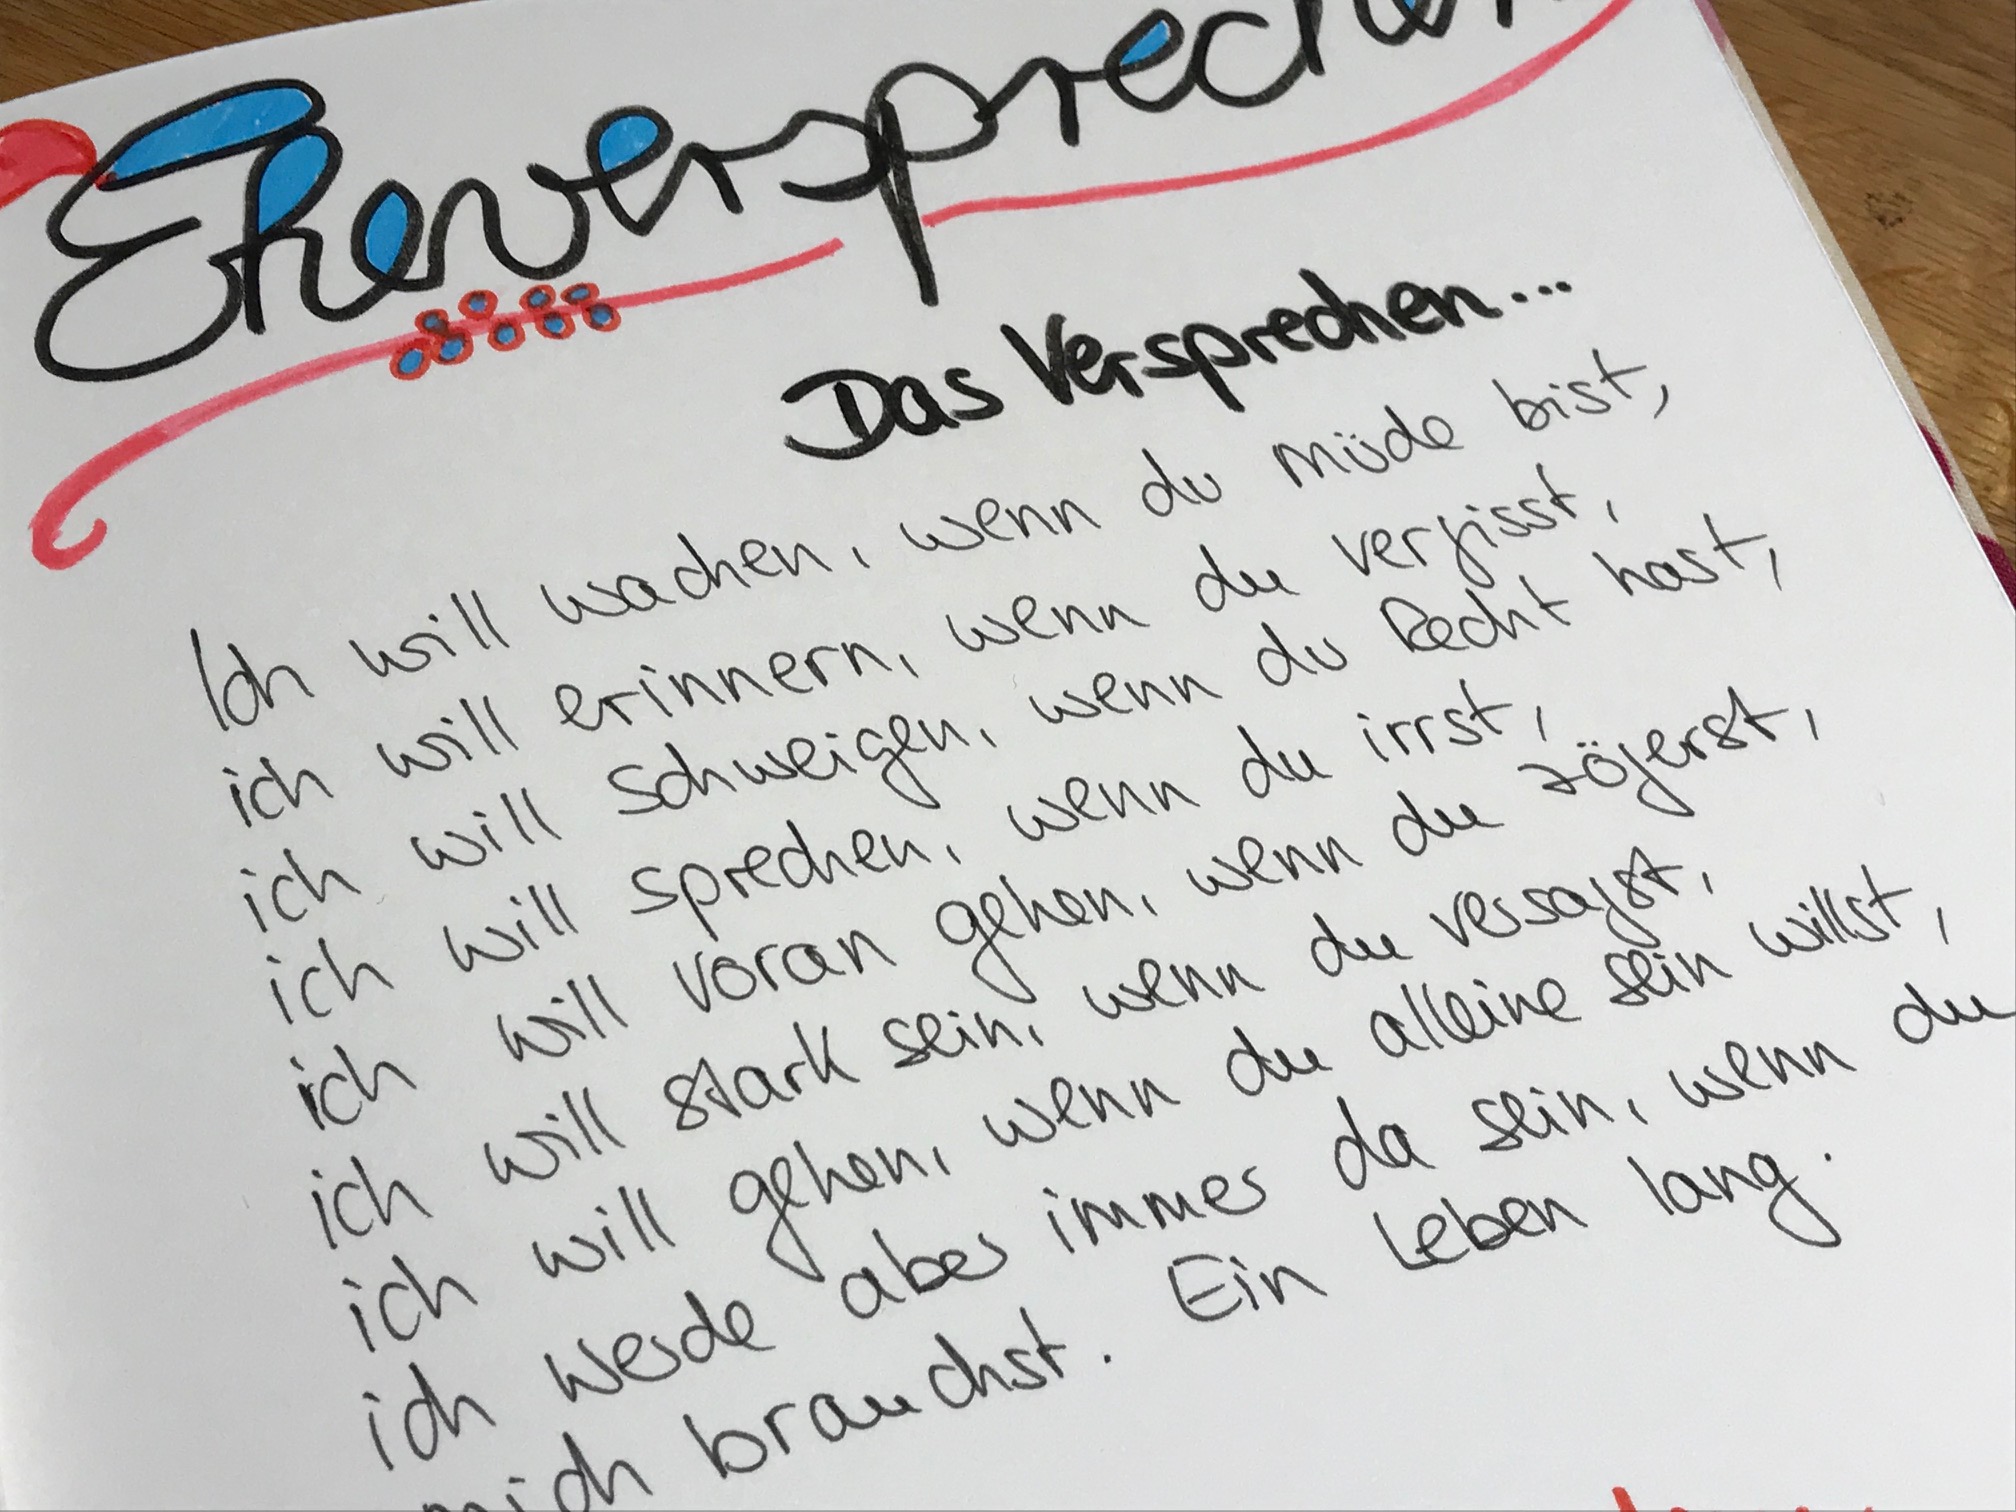 Eheversprechen
Das Versprechen...
Ich will wachen, wenn du müde bist,
ich will erinnern, wenn du vergisst,
ich will schweigen, wenn du Recht hast,
ich will sprechen, wenn du irrst,
ich will voran gehen, wenn du zögerst,
ich will stark sein, wenn du versagst,
ich will gehen, wenn du alleine sein willst,
ich werde aber immer da sein, wenn du
mich brauchst. Ein Leben lang.